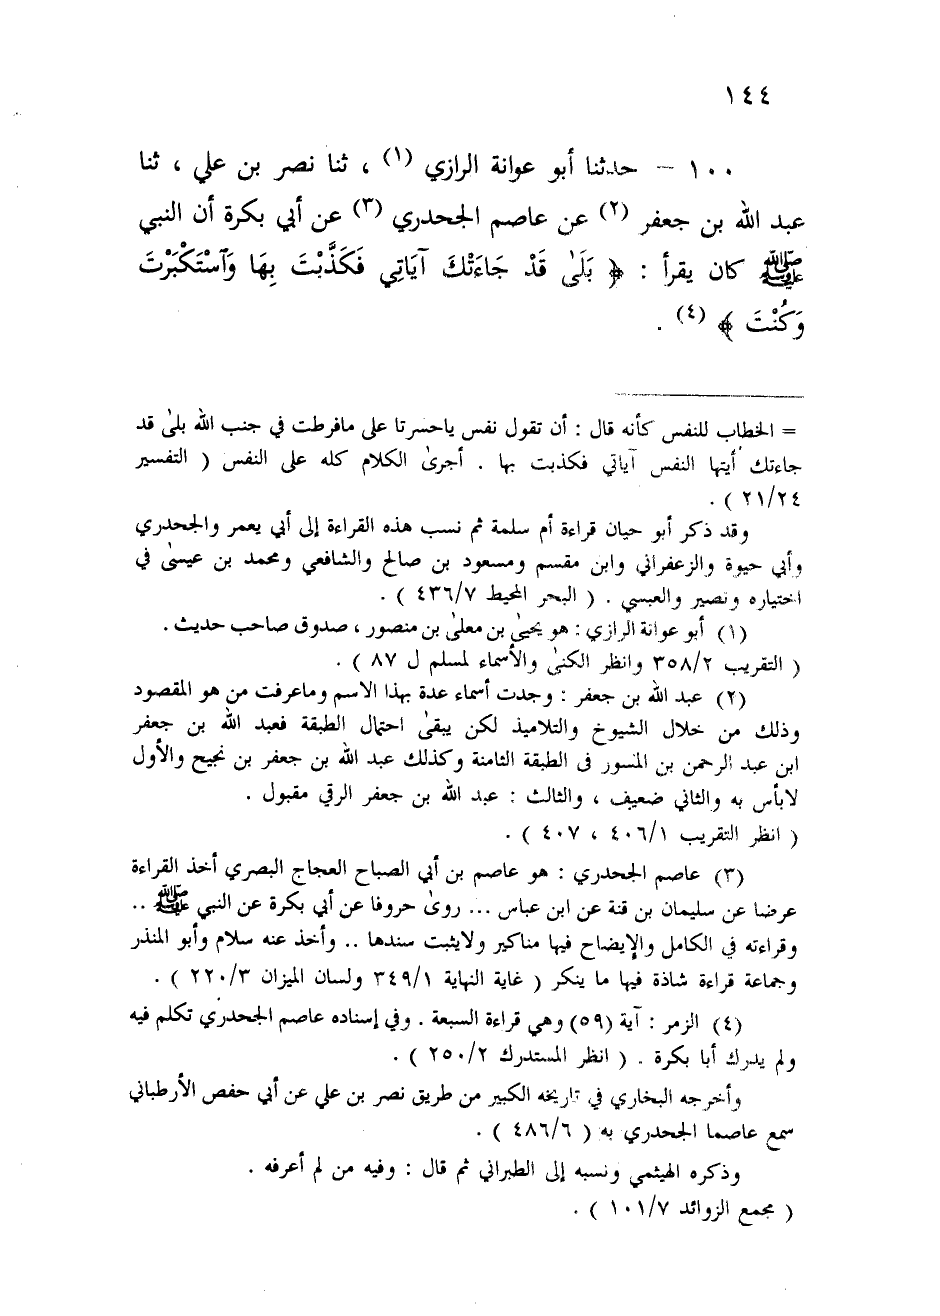 ١٤٤
١٠٠ – حدثنا أبو عوانة الرازي (١) ، ثنا نصر بن علي ، ثنا
عبد الله بن جعفر (٢) عن عاصم الجحدري (٣) عن أبي بكرة أن النبي
ﷺ كان يقرأ : ﴿ بَلَىٰ قَدْ جَاءَتْكَ آيَاتِي فَكَذَّبْتَ بِهَا وَٱسْتَكْبَرْتَ
وَكُنْتَ ﴾ (٤) .
= الخطاب للنفس كأنه قال : أن تقول نفس ياحسرتا على مافرطت في جنب الله بلىٰ قد
جاءتك أيتها النفس آياتي فكذبت بها . أجرىٰ الكلام كله على النفس ( التفسير
٢١/٢٤ ) .
وقد ذكر أبو حيان قراءة أم سلمة ثم نسب هذه القراءة إلى أبي يعمر والجحدري
وأبي حيوة والزعفراني وابن مقسم ومسعود بن صالح والشافعي ومحمد بن عيسىٰ في
اختياره ونصير والعبسي . ( البحر المحيط ٤٣٦/٧ ) .
(١) أبو عوانة الرازي : هو يحيىٰ بن معلىٰ بن منصور ، صدوق صاحب حديث .
( التقريب ٣٥٨/٢ وانظر الكنىٰ والأسماء لمسلم ل ٨٧ ) .
(٢) عبد الله بن جعفر : وجدت أسماء عدة بهذا الاسم وماعرفت من هو المقصود
وذلك من خلال الشيوخ والتلاميذ لكن يبقىٰ احتمال الطبقة فعبد الله بن جعفر
ابن عبد الرحمن بن المسور فى الطبقة الثامنة وكذلك عبد الله بن جعفر بن نجيح والأول
لابأس به والثاني ضعيف ، والثالث : عبد الله بن جعفر الرقي مقبول .
( انظر التقريب ٤٠٦/١ ، ٤٠٧ ) .
(٣) عاصم الجحدري : هو عاصم بن أبي الصباح العجاج البصري أخذ القراءة
عرضا عن سليمان بن قنة عن ابن عباس ... روىٰ حروفا عن أبي بكرة عن النبي ﷺ ..
وقراءته في الكامل والإيضاح فيها مناكير ولايثبت سندها .. وأخذ عنه سلام وأبو المنذر
وجماعة قراءة شاذة فيها ما ينكر ( غاية النهاية ٣٤٩/١ ولسان الميزان ٢٢٠/٣ ) .
(٤) الزمر : آية (٥٩) وهي قراءة السبعة . وفي إسناده عاصم الجحدري تكلم فيه
ولم يدرك أبا بكرة . ( انظر المستدرك ٢٥٠/٢ ) .
وأخرجه البخاري في تاريخه الكبير من طريق نصر بن علي عن أبي حفص الأرطباني
سمع عاصما الجحدري به ( ٤٨٦/٦ ) .
وذكره الهيثمي ونسبه إلى الطبراني ثم قال : وفيه من لم أعرفه .
( مجمع الزوائد ١٠١/٧ ) .